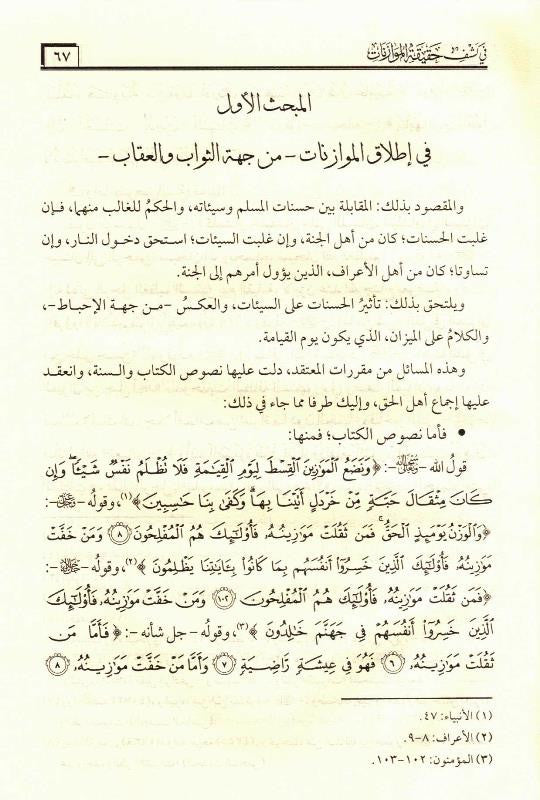 في كشف حقيقة الموازنات
٦٧
المبحث الأول
في إطلاق الموازنات - من جهة الثواب والعقاب -
والمقصود بذلك: المقابلة بين حسنات المسلم وسيئاته، والحكمُ للغالب منهما، فإن
غلبت الحسنات؛ كان من أهل الجنة، وإن غلبت السيئات؛ استحق دخول النار، وإن
تساوتا؛ كان من أهل الأعراف، الذين يؤول أمرهم إلى الجنة.
ويلتحق بذلك: تأثيرُ الحسنات على السيئات، والعكسُ -من جهة الإحباط-،
والكلامُ على الميزان، الذي يكون يوم القيامة.
وهذه المسائل من مقررات المعتقد، دلت عليها نصوص الكتاب والسنة، وانعقد
عليها إجماع أهل الحق، وإليك طرفا مما جاء في ذلك:
• فأما نصوص الكتاب؛ فمنها:
قولُ الله -ﷻ-: ﴿وَنَضَعُ ٱلْمَوَٰزِينَ ٱلْقِسْطَ لِيَوْمِ ٱلْقِيَٰمَةِ فَلَا تُظْلَمُ نَفْسٌ شَيْـًٔا وَإِن
كَانَ مِثْقَالَ حَبَّةٍ مِّنْ خَرْدَلٍ أَتَيْنَا بِهَا وَكَفَىٰ بِنَا حَٰسِبِينَ﴾(١)، وقولُه -ﷻ-:
﴿وَٱلْوَزْنُ يَوْمَئِذٍ ٱلْحَقُّ فَمَن ثَقُلَتْ مَوَٰزِينُهُۥ فَأُو۟لَٰٓئِكَ هُمُ ٱلْمُفْلِحُونَ ٨ وَمَنْ خَفَّتْ
مَوَٰزِينُهُۥ فَأُو۟لَٰٓئِكَ ٱلَّذِينَ خَسِرُوٓا۟ أَنفُسَهُم بِمَا كَانُوا۟ بِـَٔايَٰتِنَا يَظْلِمُونَ﴾(٢)، وقولُه -ﷻ-:
﴿فَمَن ثَقُلَتْ مَوَٰزِينُهُۥ فَأُو۟لَٰٓئِكَ هُمُ ٱلْمُفْلِحُونَ ١٠٢ وَمَنْ خَفَّتْ مَوَٰزِينُهُۥ فَأُو۟لَٰٓئِكَ
ٱلَّذِينَ خَسِرُوٓا۟ أَنفُسَهُمْ فِى جَهَنَّمَ خَٰلِدُونَ﴾(٣)، وقولُه - جل شأنه -: ﴿فَأَمَّا مَن
ثَقُلَتْ مَوَٰزِينُهُۥ ٦ فَهُوَ فِى عِيشَةٍ رَّاضِيَةٍ ٧ وَأَمَّا مَنْ خَفَّتْ مَوَٰزِينُهُۥ ٨
(١) الأنبياء: ٤٧.
(٢) الأعراف: ٨-٩.
(٣) المؤمنون: ١٠٢-١٠٣.